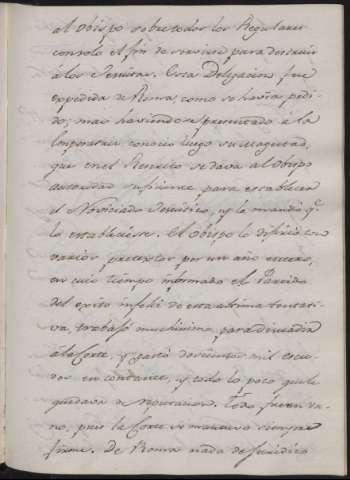 al Obispo sobre todos los Regulares
con solo el fin de servirse para destruir
à los Jesuitas. Esta Delegacion fue
expedida de Roma, como se havia pedi-
do; mas haviendose presentado à la
Emperatriz, conociò luego su Magestad,
que en el Rescrito se dava al Obispo
autoridad suficiente para establecer
el Noviciado Jesuitico, y le mandò q.e
lo estableciesse. El Obispo lo difiriò con
varios pretextos por un año entero,
en cuio tiempo informado el Partido
del exito infeliz de esta ultima tentati-
va, trabajò muchissimo, para disuadir
à la Corte, y gastò doscientos mil escu-
dos en contante, y todo lo poco que le
quedava de reputacion. Todo fue en va-
no, pues la Corte se mantuvo siempre
firme. De Roma nada de Juridico